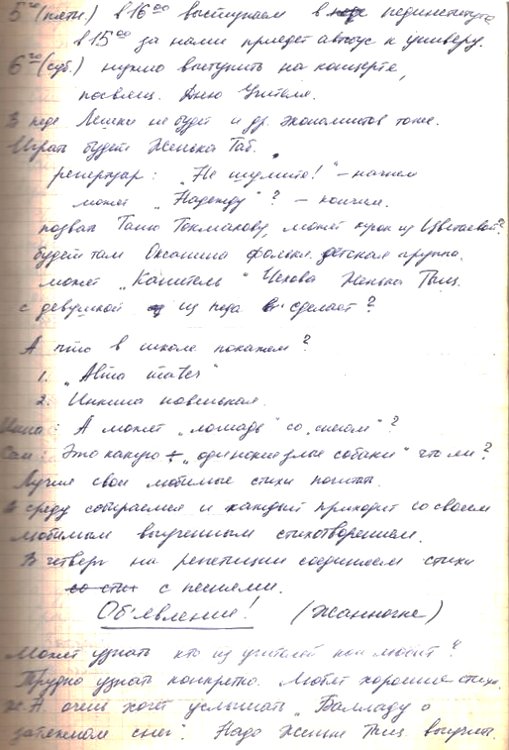 5го (пятн.) в 16⁰⁰ выступаем в пединституте
в 15⁰⁰ за нами приедет автобус к универу.
6го (суб.) нужно выступить на концерте,
посвящ. Дню Учителя.
В педе Лешки не будет и др. экономистов тоже.
Играть будет Женька Таб.
репертуар: "Не шумите!" - начнем
может "Надежду"? - кончим.
позвать Таню Токмакову, может кусок из Цветаевой?
будет там Оксанина фолькл. детская группа.
может "Канитель" Чехова Женька
с девушкой из педа сделает?
А что в школе покажем?
1. "Alma mater"
2. Инкина новенькая.
А может "лошадь" со "снегом"?
Сам: Это какую - "одинокие злые собаки" что ли?
Лучше свои любимые стихи почитать.
В среду собираемся и каждый приходит со своем
любимым выученным стихотворением.
В четверг на репетиции соединяем стихи
со стих с песнями.
Объявление! (Жанночке)
Может узнать кто из учителей кого любит?
Трудно узнать конкретно. Любят хорошие стихи.
очень хочет услышать "Балладу о
затяжном снеге". Надо Женьке выучить.